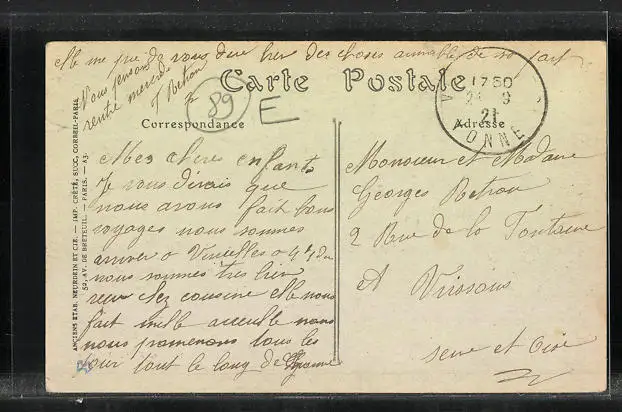 elle me prie de vous dire bien des choses aimable de sa part
Nous pensons
rentre mercredi
T Retrou
Carte Postale
89
E
1750
21
YONNE
Correspondance
Adresse
ANCIENS ETAB. NEURDEIN ET CIE. — IMP. CRÉTÉ, SUCC, CORBEIL-PARIS.
52, AV. DE BRETEUIL. — PARIS. — A3.
Mes chères enfants
Je vous dirais que
nous avons fait bons
voyages nous sommes
arriver a
nous sommes très bien
reçu chez cousine elle nous
fait mille nous
nous promenons tous les
jour tout le long de
Monsieur et Madame
Georges Retrou
2 Rue de la Fontaine
et
seine et oise